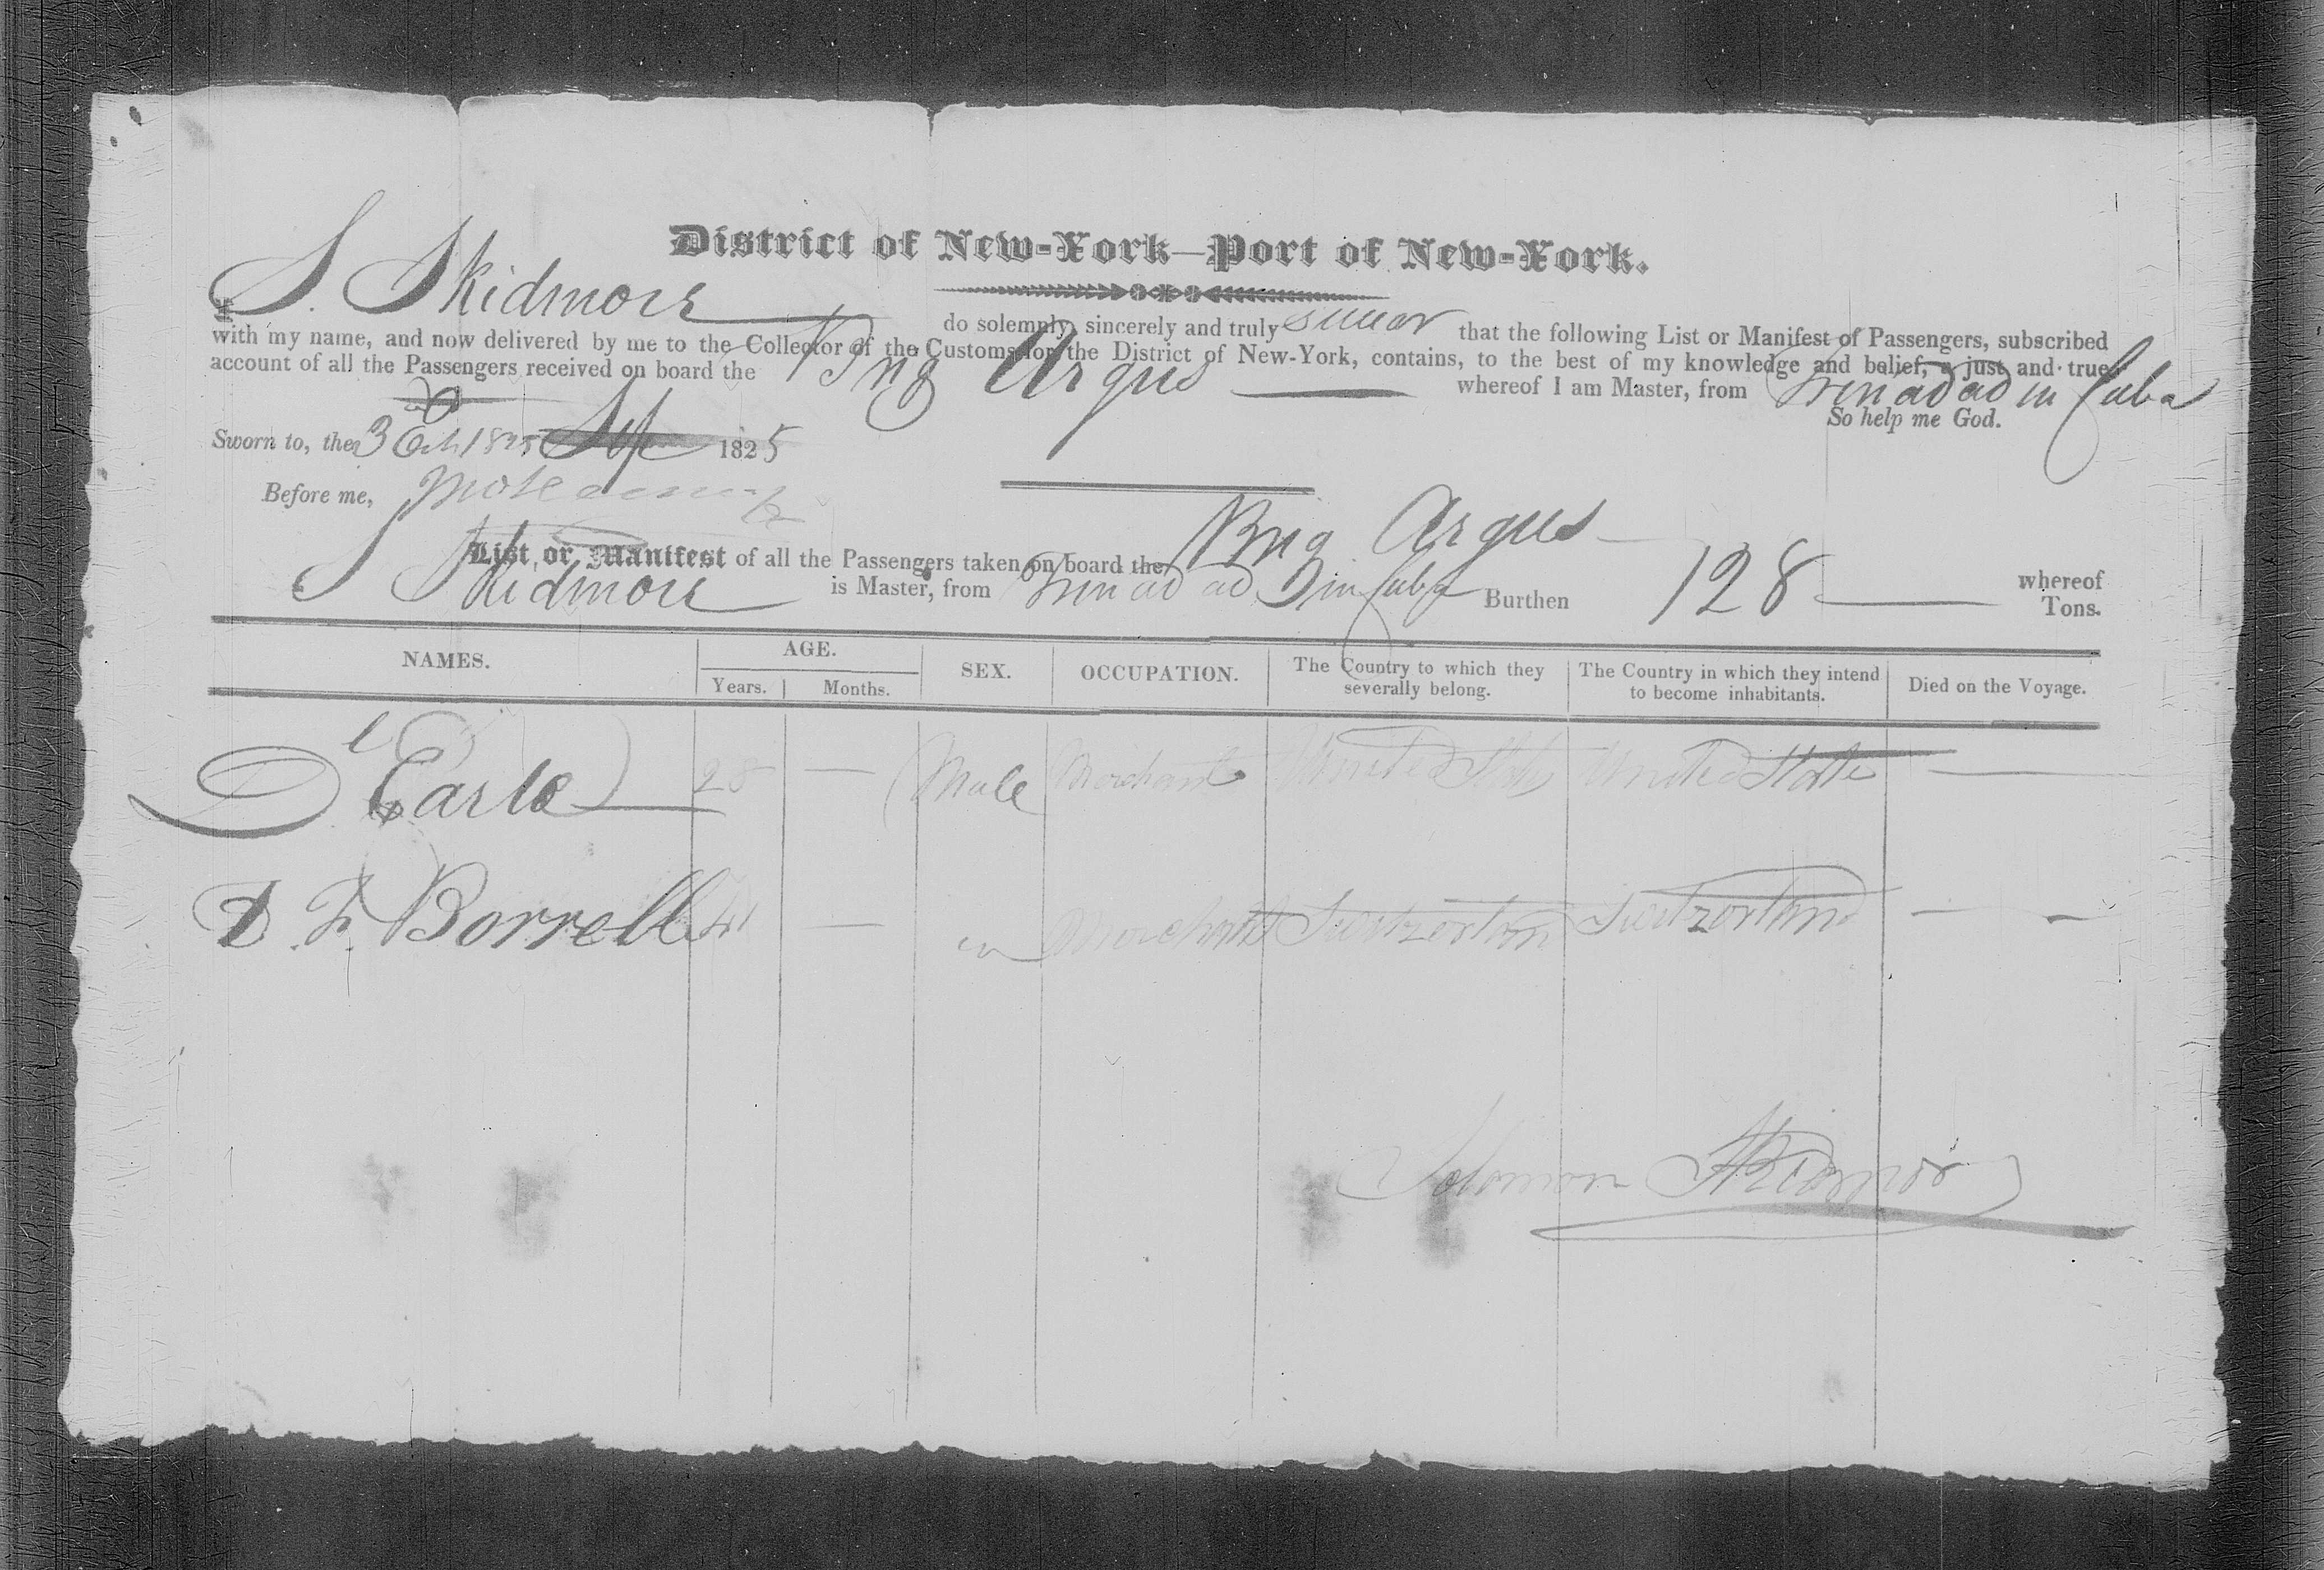 District of New-York—Port of New-York.
I S. Skidmore do solemnly, sincerely and truly swear that the following List or Manifest of Passengers, subscribed
with my name, and now delivered by me to the Collector of the Customs for the District of New-York, contains, to the best of my knowledge and belief, a just and true
account of all the Passengers received on board the Brig Argus whereof I am Master, from Trinadad in Cuba
So help me God.
Sworn to, the 3 Oct 1825 Sep 1825
Before me,
List or Manifest of all the Passengers taken on board the Brig Argus whereof
S Skidmore is Master, from Trinadad in Cuba Burthen 128 Tons.
NAMES. AGE. SEX. OCCUPATION. The Country to which they severally belong. The Country in which they intend to become inhabitants. Died on the Voyage.
Years. Months.
D Earle 28 — Male Merchant United States United State —
D. F. Borrell 41 — Merchant Switzerland Switzerland — —
Solomon Skidmore